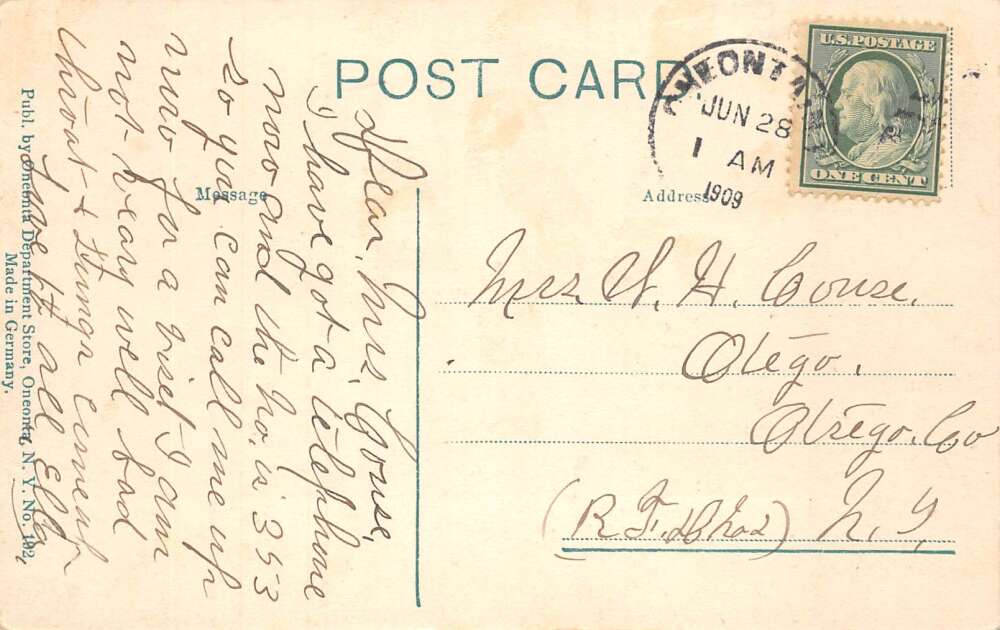 POST CARD
U.S. POSTAGE
ONE CENT
ONEONTA, N.Y.
JUN 28
1 AM
1909
Message
Address
Dear Mrs. Couse,
I have got a telephone
now and the no, is 353
so you can call me up
now for a visit I am
not very well bad
throat &
Love to all Ella
Mrs. W. H. Couse.
Otego.
Otsego. Co
(R. F. D. No 2) N. Y,
Publ. by Oneonta Department Store, Oneonta, N. Y. No. 192
Made in Germany.